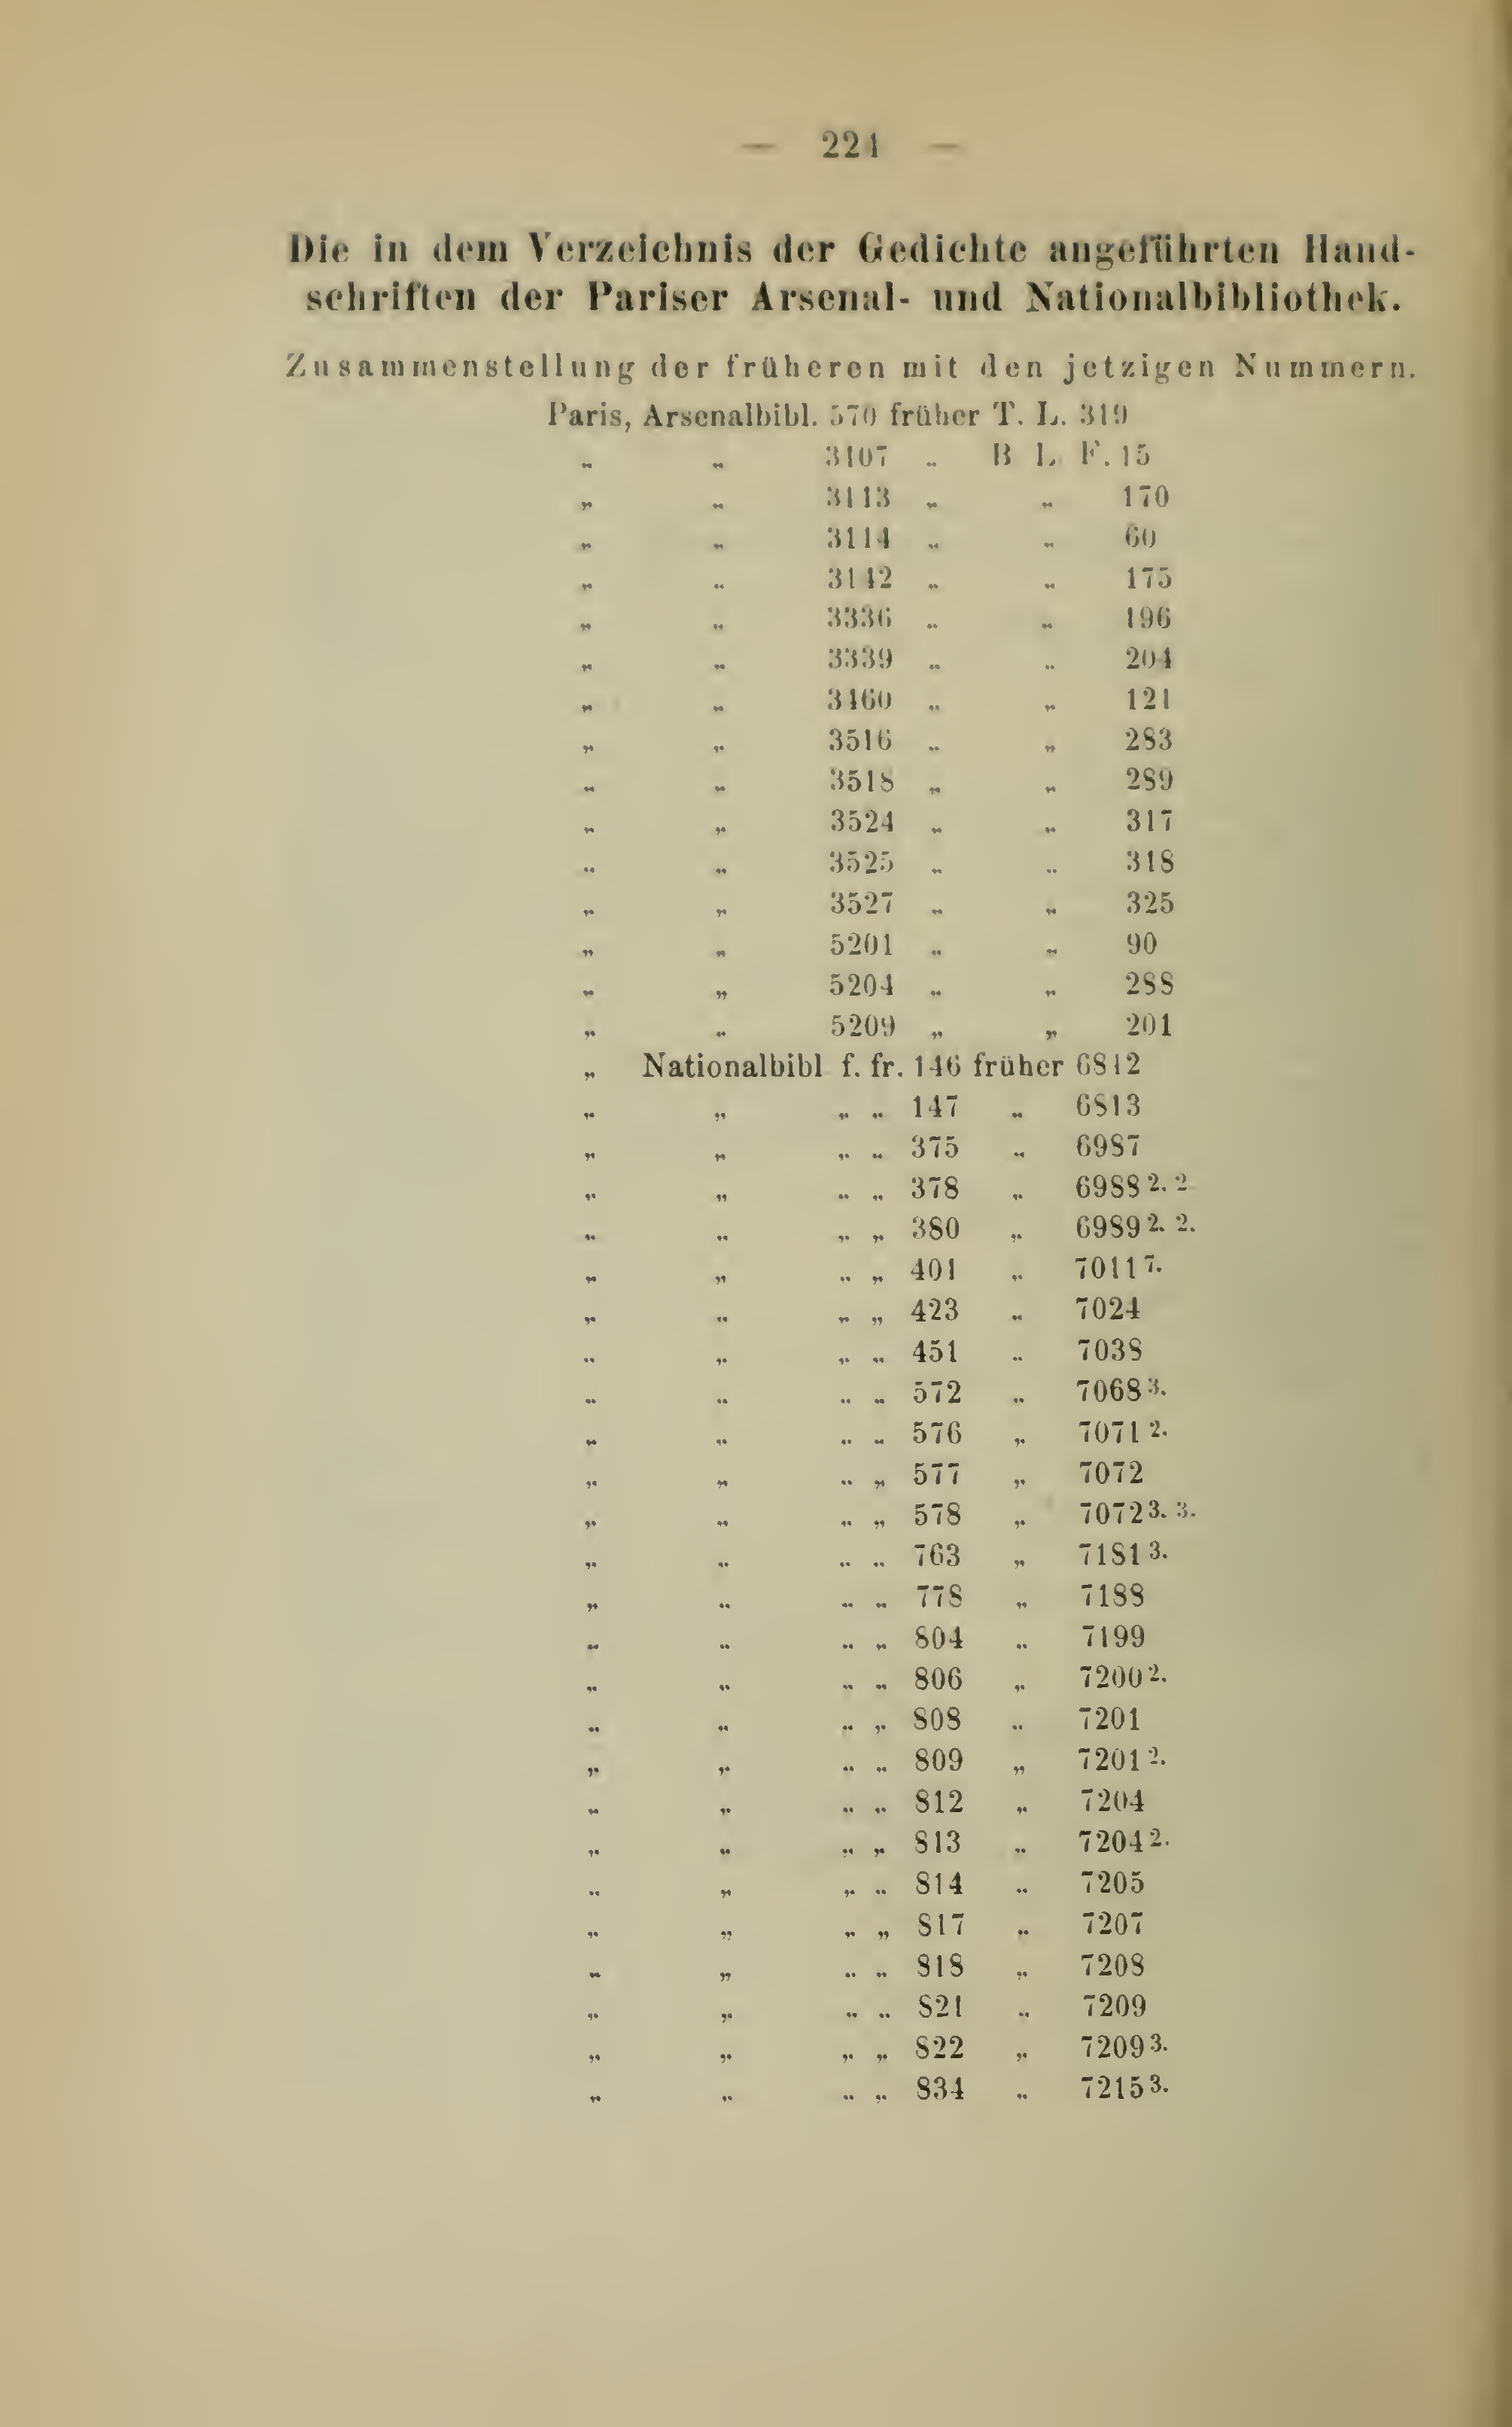 — 221 —
Die in dem Verzeichnis der Gedichte angeführten Hand-
schriften der Pariser Arsenal- und Nationalbibliothek.
Zusammenstellung der früheren mit den jetzigen Nummern.
Paris, Arsenalbibl. 570 früher T. L. 319
„ „ 3107 „ B L F. 15
„ „ 3113 „ „ 170
„ „ 3114 „ „ 60
„ „ 3142 „ „ 175
„ „ 3336 „ „ 196
„ „ 3339 „ „ 204
„ „ 3460 „ „ 121
„ „ 3516 „ „ 283
„ „ 3518 „ „ 289
„ „ 3524 „ „ 317
„ „ 3525 „ „ 318
„ „ 3527 „ „ 325
„ „ 5201 „ „ 90
„ „ 5204 „ „ 288
„ „ 5209 „ „ 201
„ Nationalbibl f. fr. 146 früher 6812
„ „ „ „ 147 „ 6813
„ „ „ „ 375 „ 6987
„ „ „ „ 378 „ 6988 2. 2
„ „ „ „ 380 „ 6989 2. 2.
„ „ „ „ 401 „ 7011 7.
„ „ „ „ 423 „ 7024
„ „ „ „ 451 „ 7038
„ „ „ „ 572 „ 7068 3.
„ „ „ „ 576 „ 7071 2.
„ „ „ „ 577 „ 7072
„ „ „ „ 578 „ 7072 3. 3.
„ „ „ „ 763 „ 7181 3.
„ „ „ „ 778 „ 7188
„ „ „ „ 804 „ 7199
„ „ „ „ 806 „ 7200 2.
„ „ „ „ 808 „ 7201
„ „ „ „ 809 „ 7201 2.
„ „ „ „ 812 „ 7204
„ „ „ „ 813 „ 7204 2.
„ „ „ „ 814 „ 7205
„ „ „ „ 817 „ 7207
„ „ „ „ 818 „ 7208
„ „ „ „ 821 „ 7209
„ „ „ „ 822 „ 7209 3.
„ „ „ „ 834 „ 7215 3.